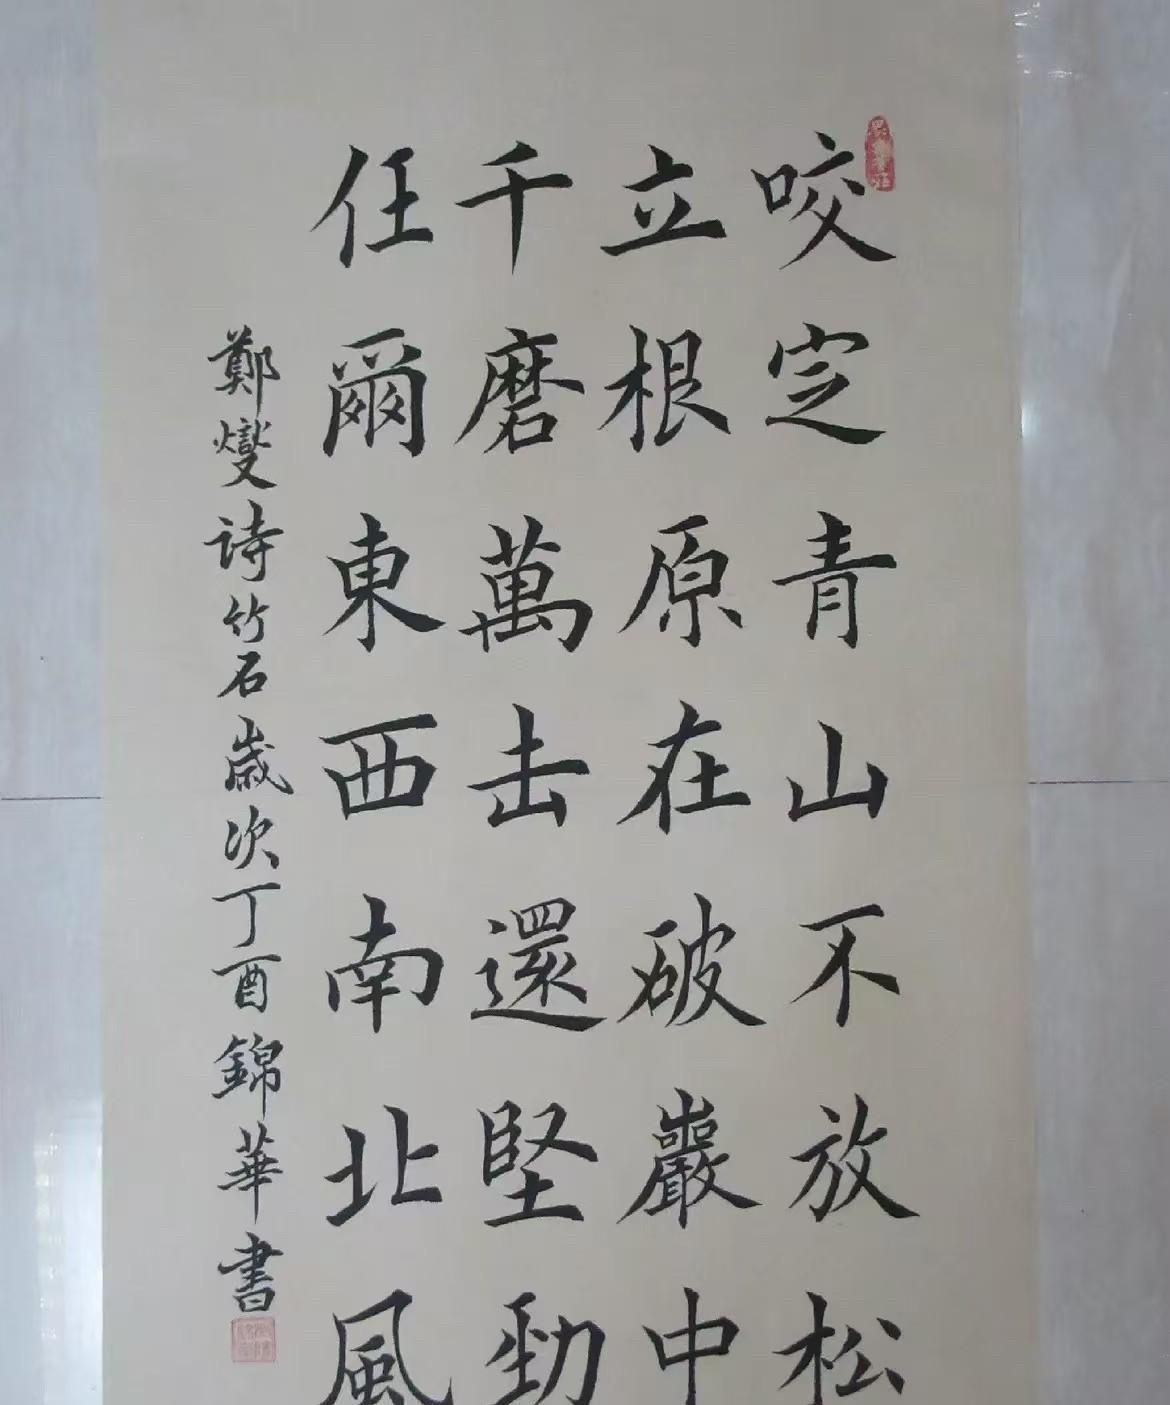 咬定青山不放松
立根原在破巖中
千磨萬击還堅勁
任爾東西南北風
鄭燮诗竹石歲次丁酉錦華書